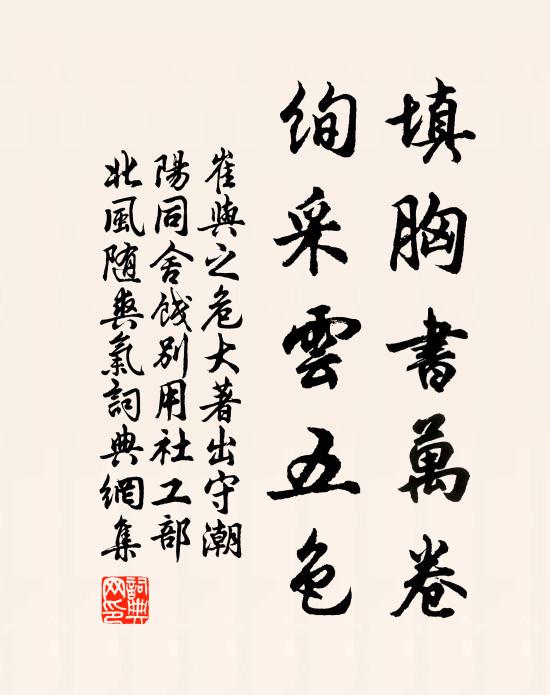 填胸書萬卷
絢采雲五色
崔與之危大著出守潮
陽同舍餞別用社工部
北風随爽氣詞典網集
詞典网印